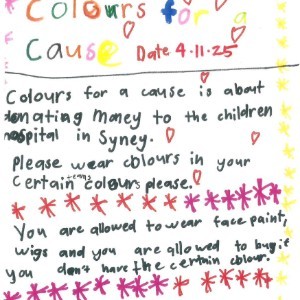 Colours for a
Cause Date 4.11.25
Colours for a cause is about
donating money to the children
hospital in Syney.
Please wear colours in your
certain teams colours please.
You are allowed to wear face paint,
wigs and you are allowed to bug if
you don't have the certain colour.